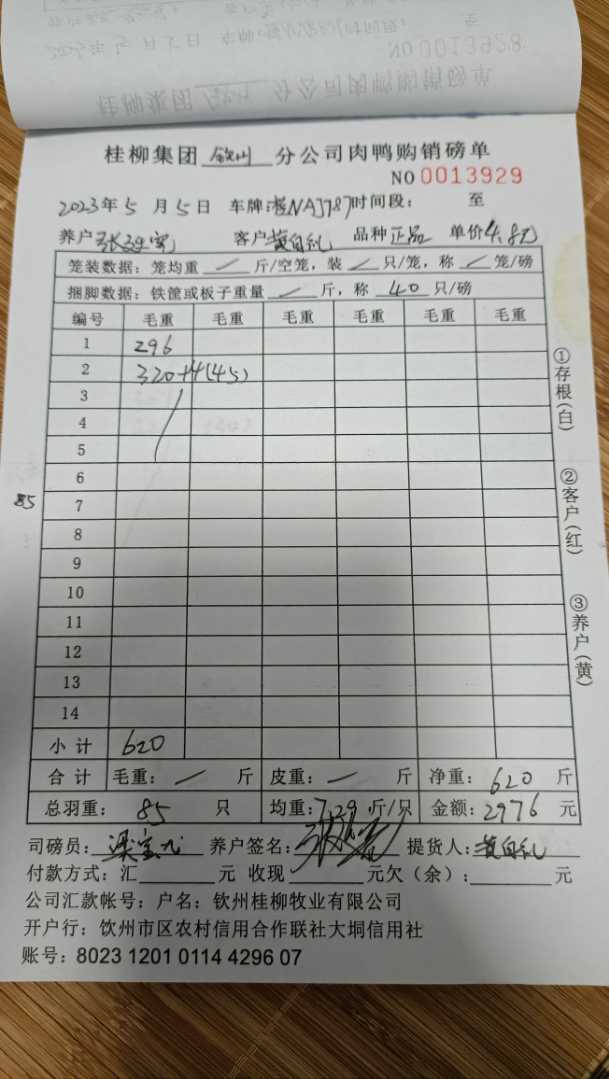 NO 0013928
桂柳集团 钦州 分公司肉鸭购销磅单
NO 0013929
2023年5月5日 车牌:桂NAJ787 时间段: 至
养户 客户 黄自礼 品种 正品 单价4.80
笼装数据: 笼均重 / 斤/空笼, 装 / 只/笼, 称 / 笼/磅
捆脚数据: 铁筐或板子重量 / 斤, 称 40 只/磅
编号 毛重 毛重 毛重 毛重 毛重 毛重
1 296
2 320+4(45)
3
4
5
6
85
7
8
9
10
11
12
13
14
小计 620
合计 毛重: / 斤 皮重: / 斤 净重: 620 斤
总羽重: 85 只 均重: 7.29 斤/只 金额: 2976 元
司磅员: 养户签名: 提货人: 黄自礼
付款方式: 汇 元 收现 元欠(余): 元
公司汇款帐号: 户名: 钦州桂柳牧业有限公司
开户行: 钦州市区农村信用合作联社大垌信用社
账号: 8023 1201 0114 4296 07
①存根(白)
②客户(红)
③养户(黄)